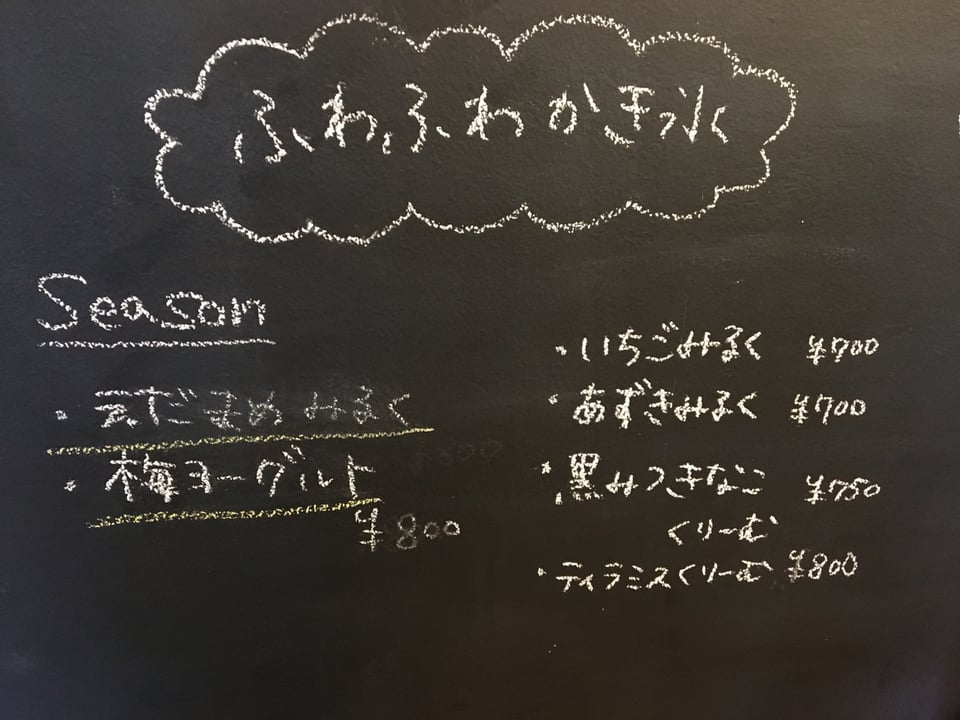 ふわふわかき氷
Season
・えだまめみるく
・梅ヨーグルト
¥800
・いちごみるく ¥700
・あずきみるく ¥700
・黒みつきなこ ¥750
くりーむ
・ティラミスくりーむ ¥800